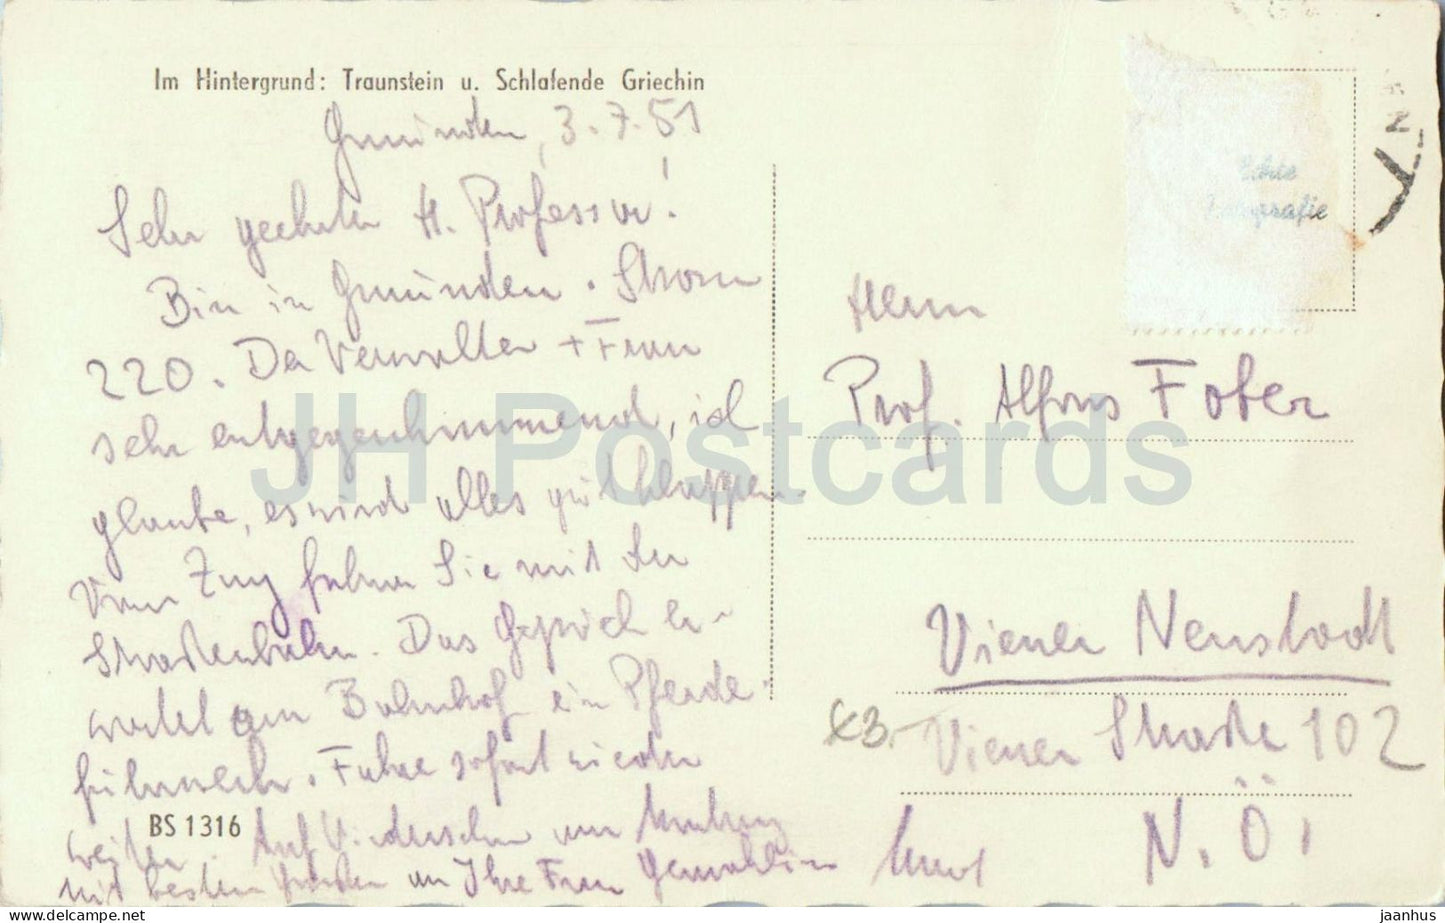 Im Hintergrund: Traunstein u. Schlafende Griechin
Gmünden, 3.7.51
Sehr geehrter H. Professor!
Bin in Gmünden. Strom
220. Der Verwalter + Frau
sehr entgegenkommend, ich
glaube, es wird alles gut klappen.
Vom Zug fahren Sie mit der
Straßenbahn. Das Gepäck er-
wartet am Bahnhof ein Pferde-
fuhrwerk. Fahre sofort wieder
weiter. Auf Wiedersehen am
mit besten Grüßen an Ihre Frau Gemahlin
BS 1316
Echte
Fotografie
Herrn
Prof. Alfons Fober
Wiener Neustadt
Wiener Straße 102
N.Ö.
€3.-
JH Postcards
jaanhus
www.delcampe.net